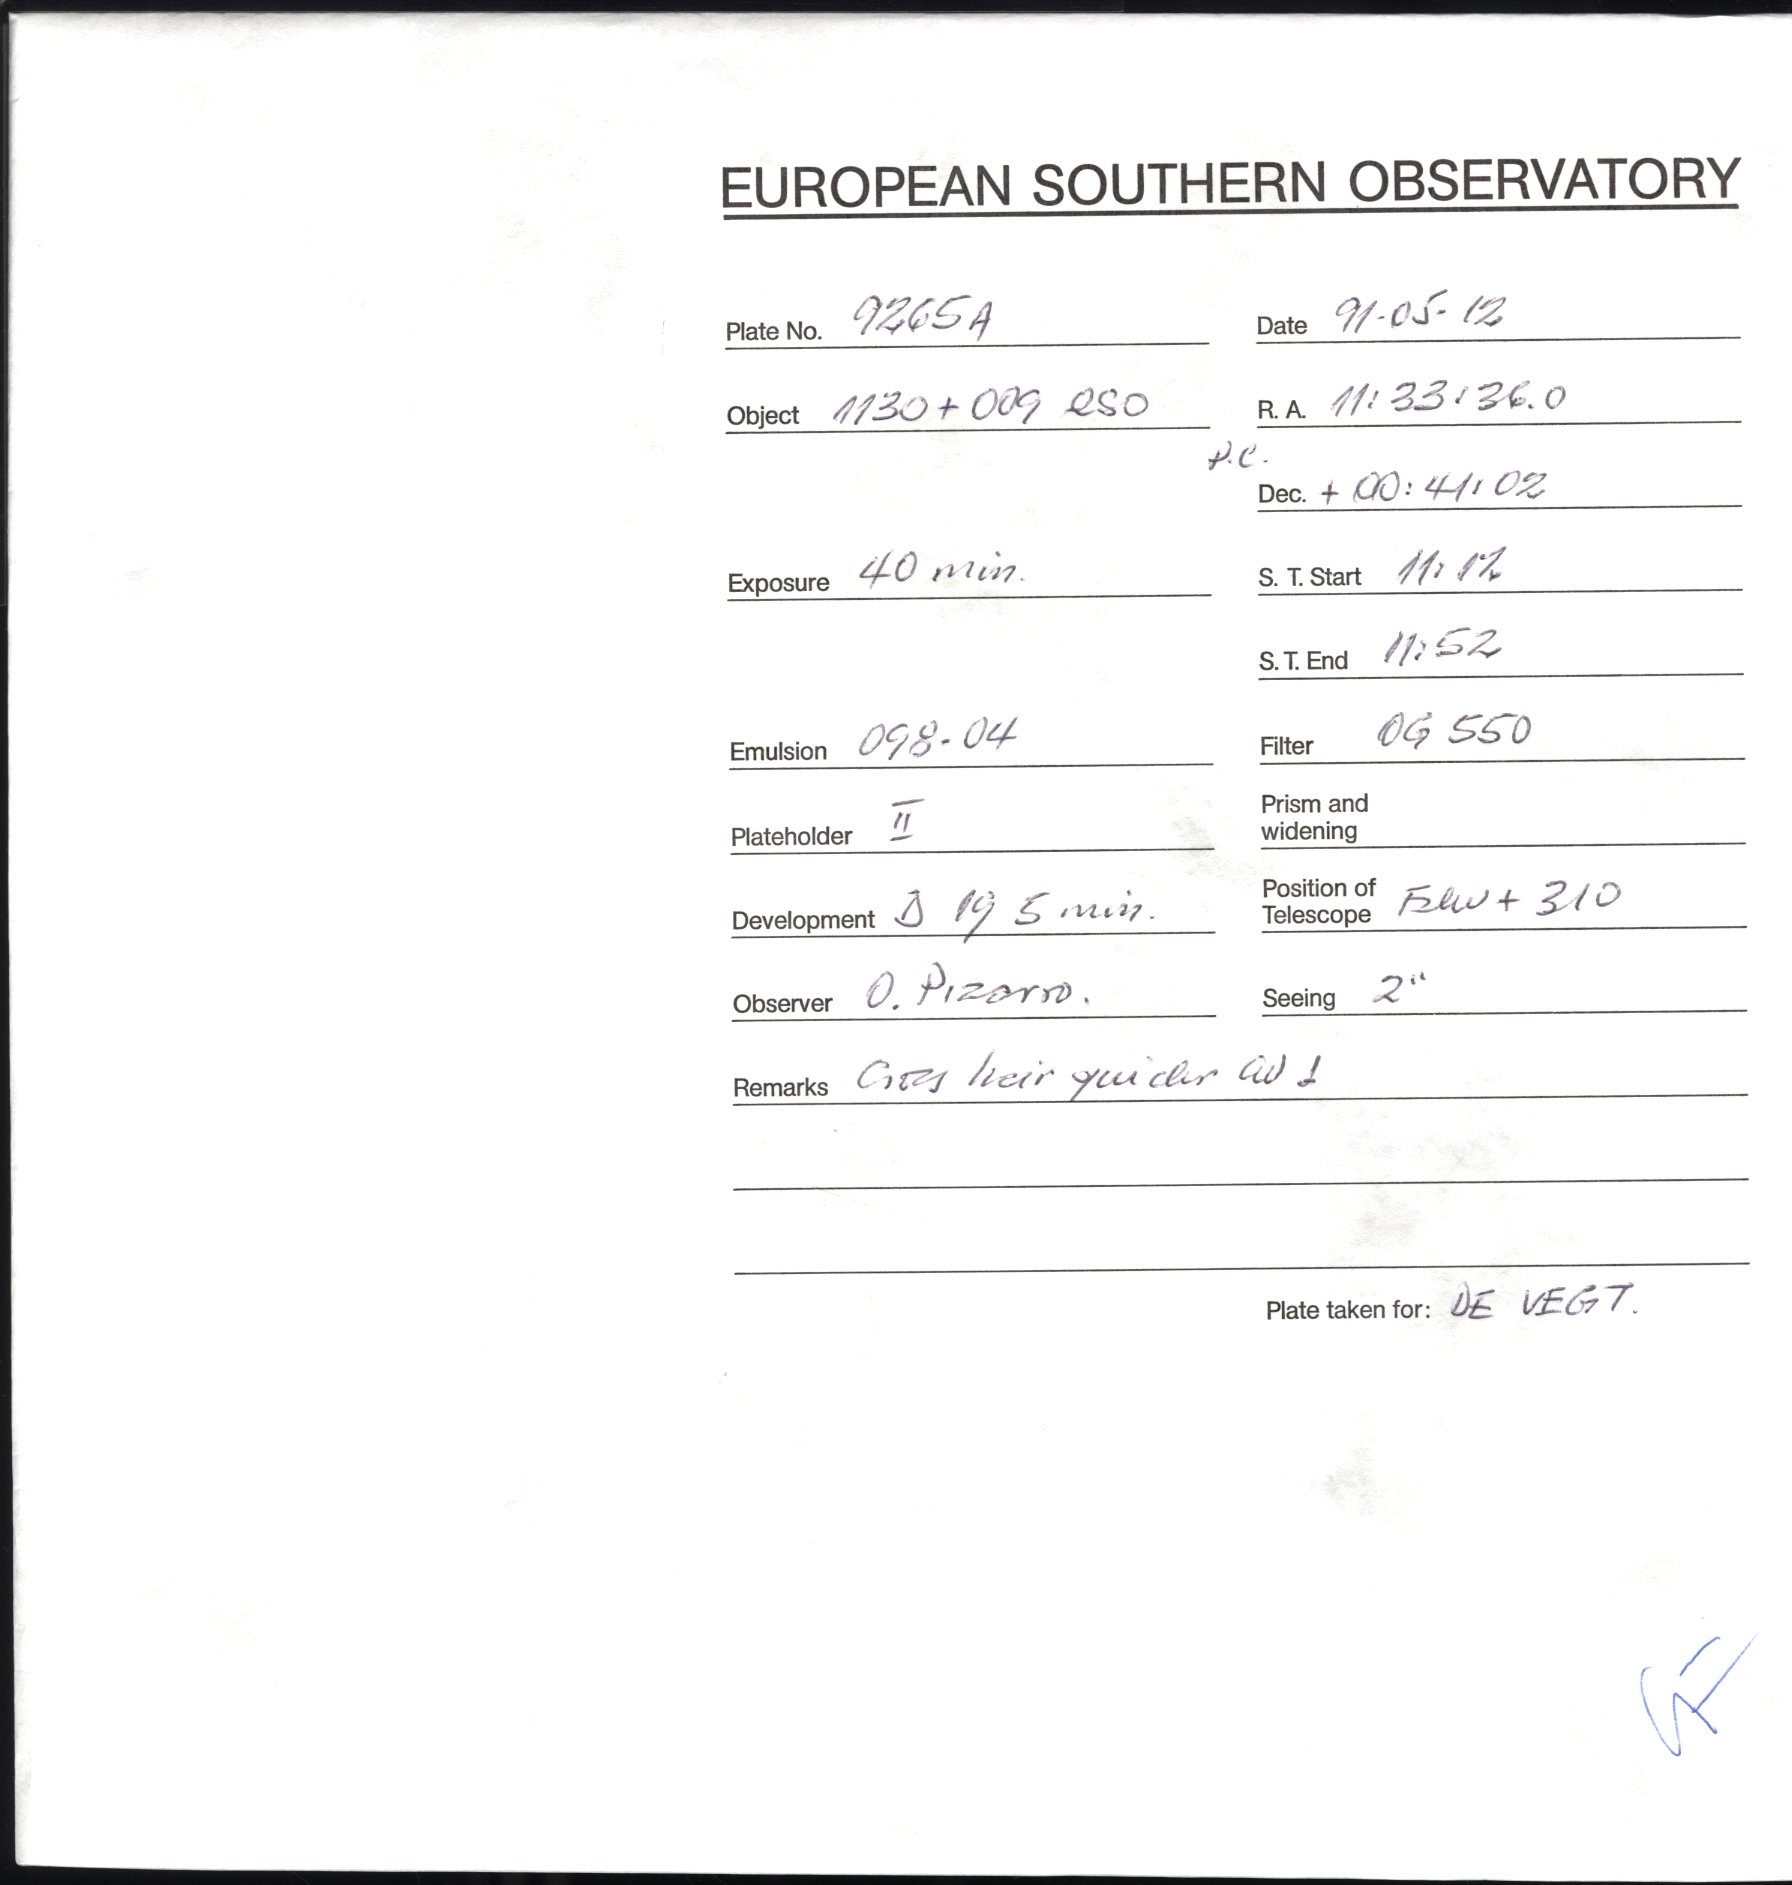 EUROPEAN SOUTHERN OBSERVATORY
Plate No. 9265A Date 91-05-12
Object 1130+009 QSO R. A. 11:33:36.0
P.C.
Dec. + 00:41:02
Exposure 40 min. S. T. Start 11:12
S. T. End 11:52
Emulsion 098-04 Filter OG 550
Plateholder II Prism and
widening
Development D 19 5 min. Position of
Telescope + 310
Observer O. Pizarro. Seeing 2"
Remarks Cross heir guider
Plate taken for: DE VEGT.